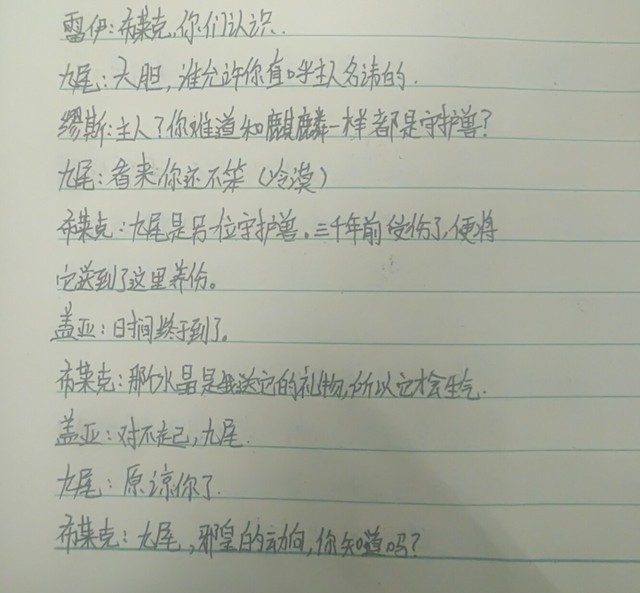 雷伊:布莱克,你们认识.
九尾:大胆,谁允许你直呼主人名讳的.
缪斯:主人?你难道和麒麟一样都是守护兽?
九尾:看来你还不笨(冷漠)
布莱克:九尾是另一位守护兽。三千年前受伤了,便将
它送到了这里养伤。
盖亚:时间终于到了。
布莱克:那个水晶是我送它的礼物,所以它才会生气.
盖亚:对不起,九尾.
九尾:原谅你了.
布莱克:九尾,邪皇的动向,你知道吗?